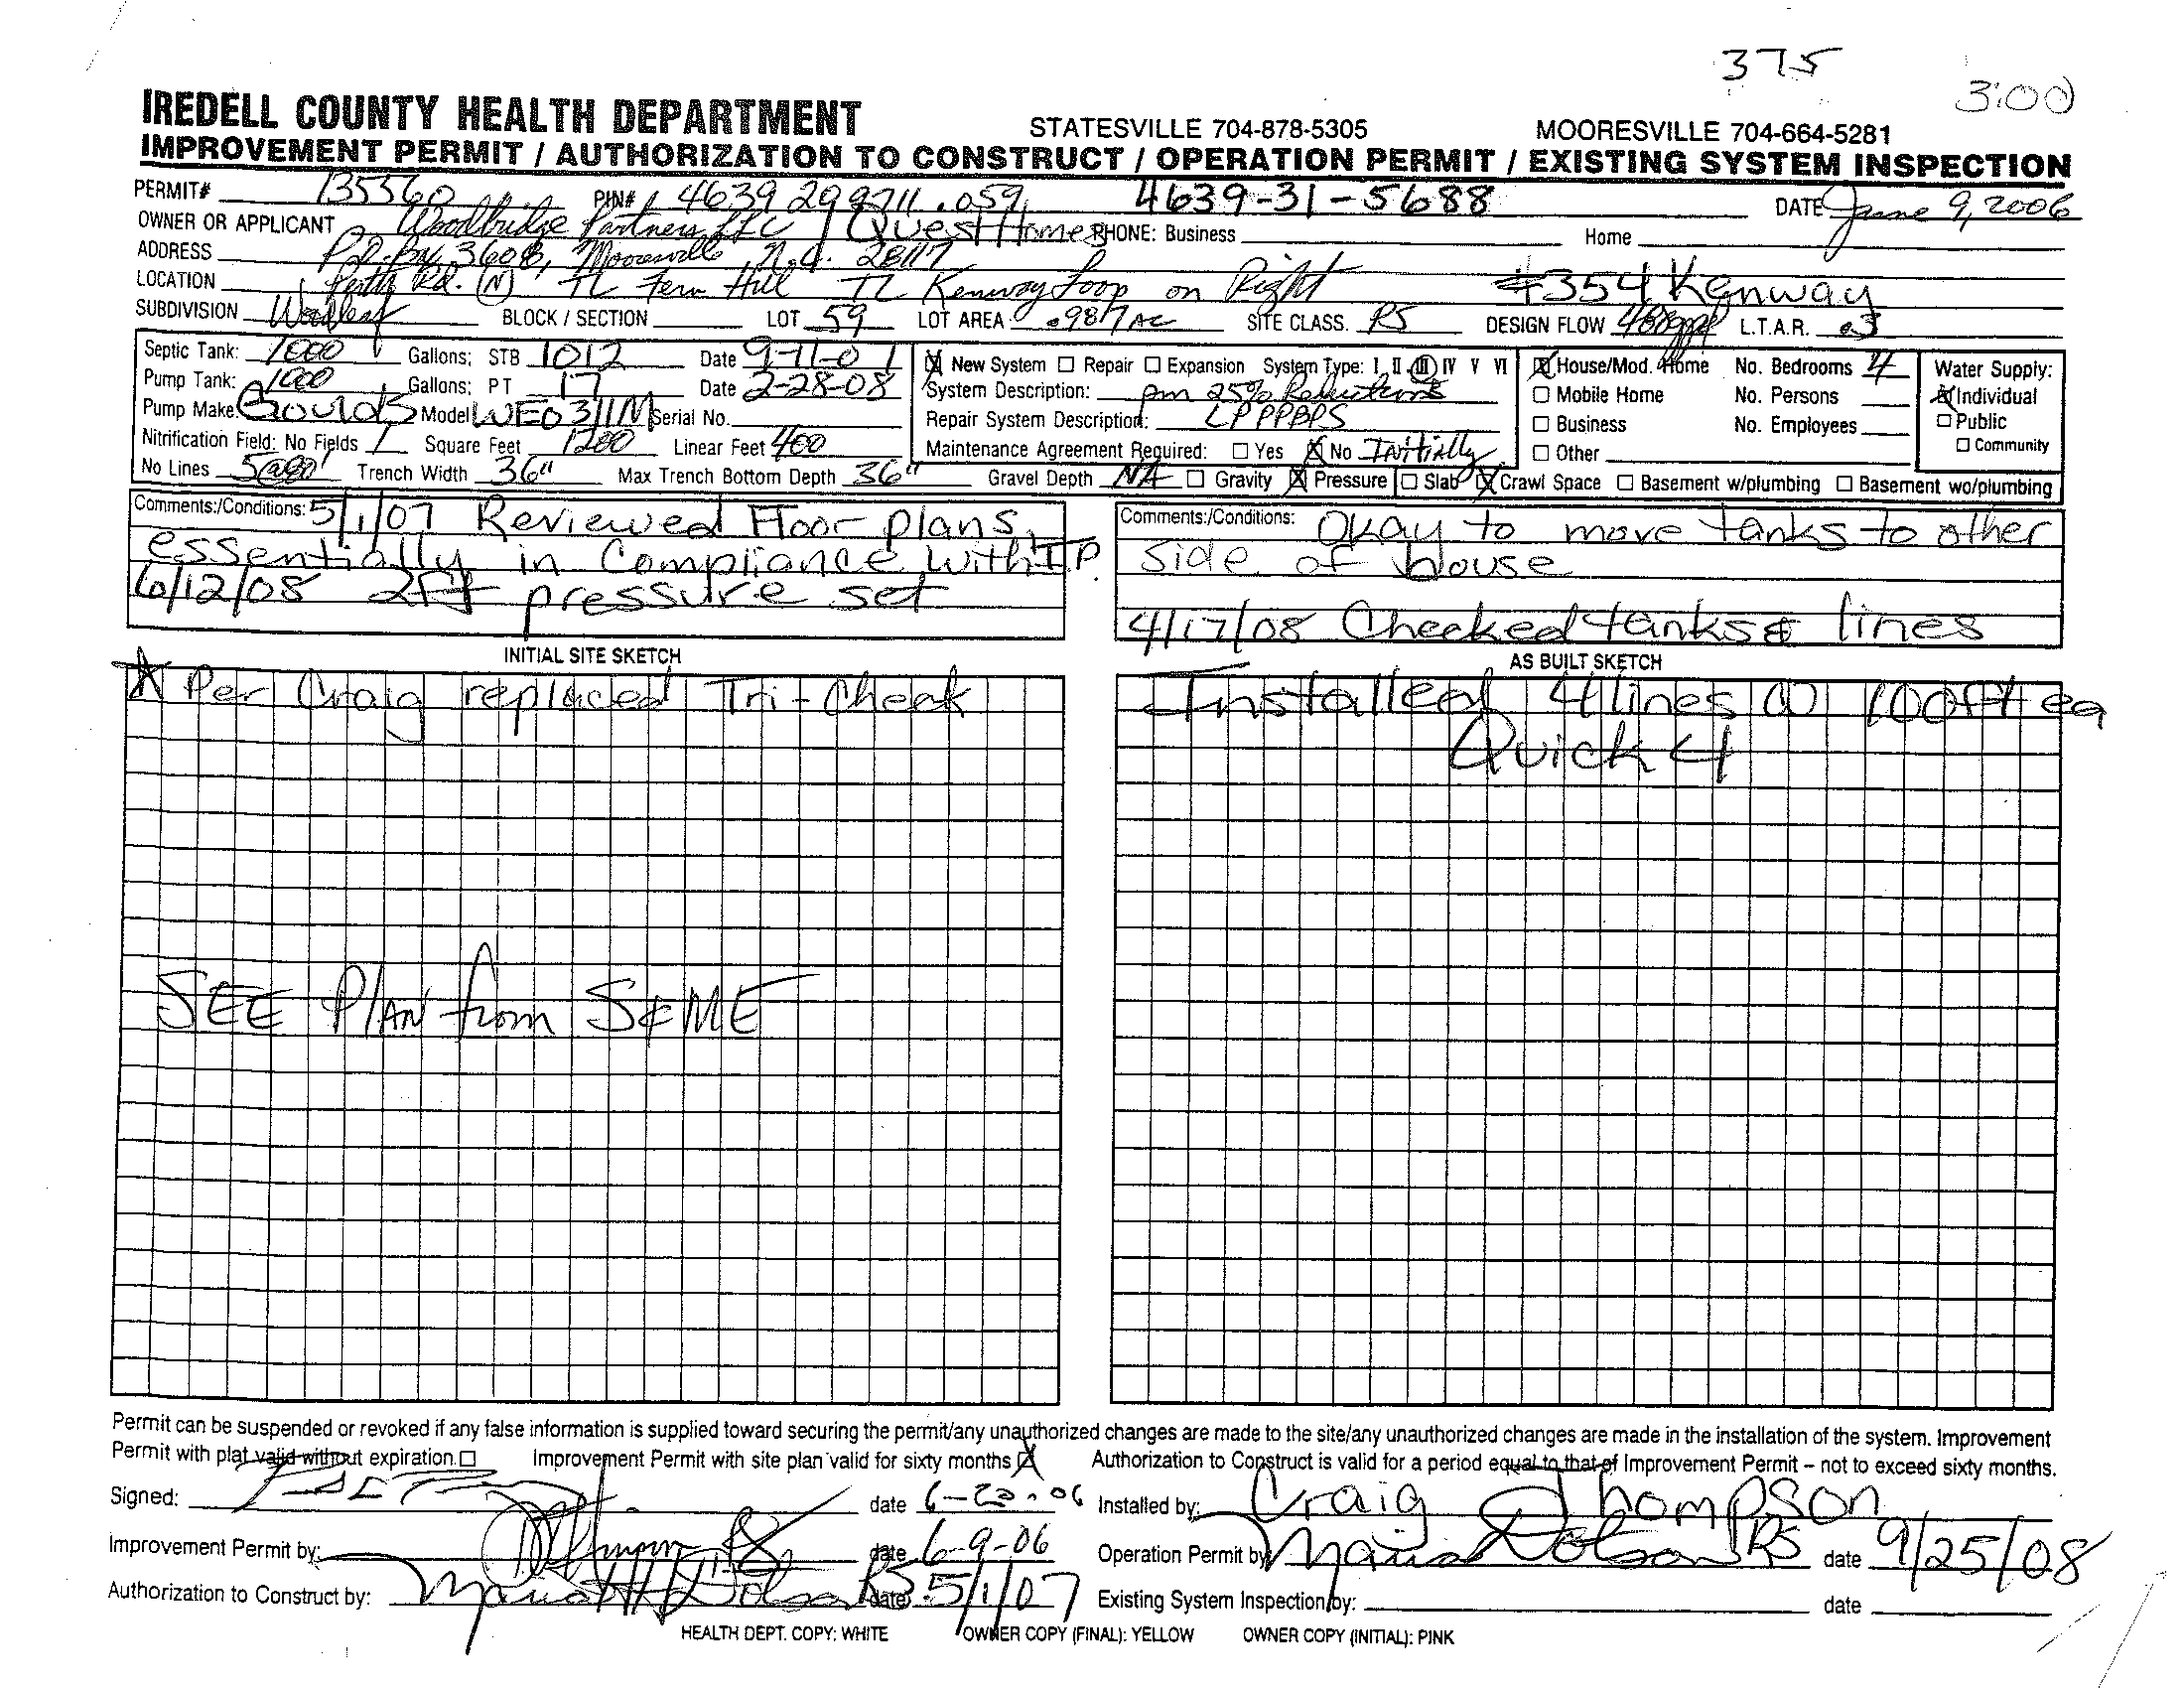 375
3:00
IREDELL COUNTY HEALTH DEPARTMENT STATESVILLE 704-878-5305 MOORESVILLE 704-664-5281
IMPROVEMENT PERMIT / AUTHORIZATION TO CONSTRUCT / OPERATION PERMIT / EXISTING SYSTEM INSPECTION
PERMIT# 135360 PIN# 4639 299711.059 4639-31-5688 DATE June 9, 2006
OWNER OR APPLICANT Woodbridge Partners LLC / Quest Homes PHONE: Business Home
ADDRESS P.O. Box 3608, Mooresville, N.C. 28117
LOCATION Perth Rd. (N) TL Fern Hill TL Kenway Loop on Right #354 Kenway
SUBDIVISION Woodleaf BLOCK / SECTION LOT 59 LOT AREA .987 AC SITE CLASS. PS DESIGN FLOW 480gpd L.T.A.R. .3
Septic Tank: 1000 Gallons; STB 1012 Date 9-11-01
Pump Tank: 1000 Gallons; PT 17 Date 2-28-08
Pump Make: Goulds Model WE0311M Serial No.
Nitrification Field: No Fields 1 Square Feet 1200 Linear Feet 400
No Lines 5@80' Trench Width 36" Max Trench Bottom Depth 36" Gravel Depth NA Gravity Pressure Slab Crawl Space Basement w/plumbing Basement wo/plumbing
New System Repair Expansion System Type: I II III IV V VI
System Description: 25% Reduction
Repair System Description: LPPPBPS
Maintenance Agreement Required: Yes No Initially
House/Mod. Home No. Bedrooms 4
Mobile Home No. Persons
Business No. Employees
Other
Water Supply:
Individual
Public
Community
Comments:/Conditions: 5/1/07 Reviewed Floor plans,
essentially in Compliance with IP.
6/12/08 2ft pressure set
Comments:/Conditions: Okay to move tanks to other
side of house
4/17/08 Checked tanks & lines
INITIAL SITE SKETCH
Per Craig replaced Tri-Cheek
SEE PLAN from S&ME
AS BUILT SKETCH
Installed 4 lines @ 100ft ea
Quick 4
Permit can be suspended or revoked if any false information is supplied toward securing the permit/any unauthorized changes are made to the site/any unauthorized changes are made in the installation of the system. Improvement
Permit with plat valid without expiration. Improvement Permit with site plan valid for sixty months Authorization to Construct is valid for a period equal to that of Improvement Permit – not to exceed sixty months.
Signed: date 6-20-06 Installed by: Craig Thompson
Improvement Permit by: date 6-9-06 Operation Permit by: Maria Dotson RS date 9/25/08
Authorization to Construct by: RS date 5/1/07 Existing System Inspection by: date
HEALTH DEPT. COPY: WHITE OWNER COPY (FINAL): YELLOW OWNER COPY (INITIAL): PINK